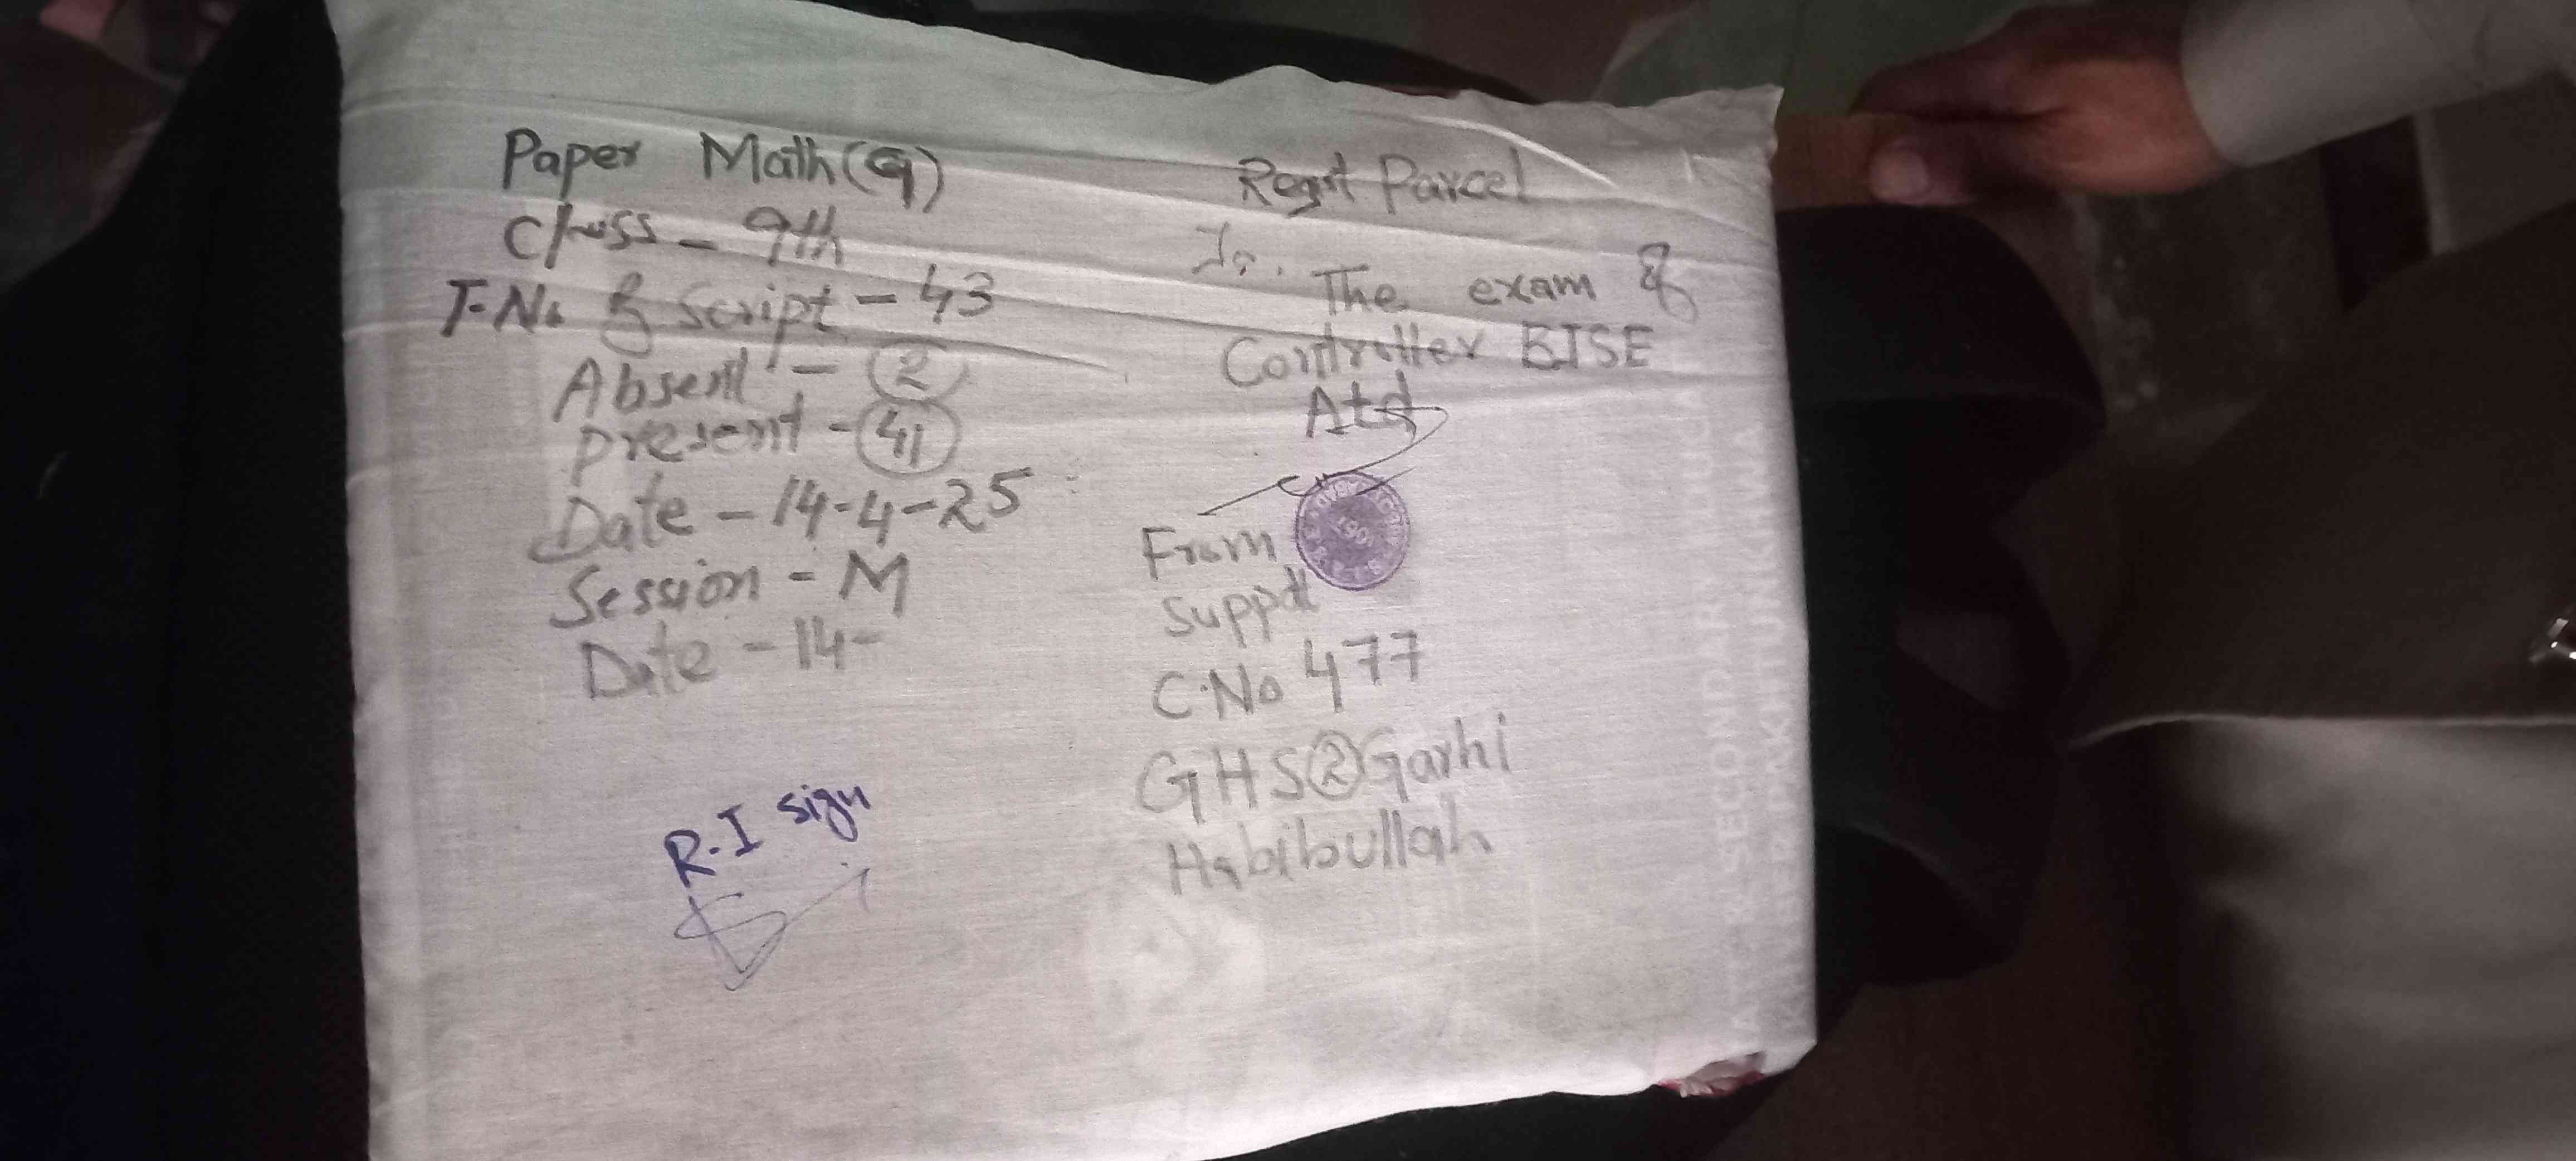 Paper Math (G)
Class - 9th
T-No of Script - 43
Absent - 2
Present - 41
Date - 14-4-25
Session - M
Date - 14-
R.I sign
Regst Parcel
To.
The exam of
Controller BISE
Atd
From
Suppdt
C.No 477
GHS 2 Garhi
Habibullah
SECONDARY